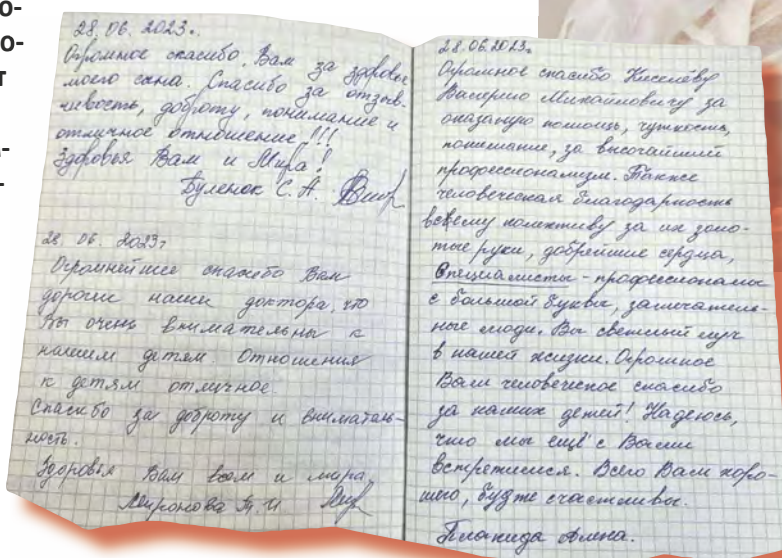 28.06.2023г.
Огромное спасибо Вам за здоровье
моего сына. Спасибо за отзыв-
чивость, доброту, понимание и
отличное отношение!!!
Здоровья Вам и Мира!
Буленок С. А.
28.06.2023г
Огромнейшее спасибо Вам
дороги наши доктора, что
Вы очень внимательны к
нашим детям. Отношения
к детям отличное.
Спасибо за доброту и внематель-
ность.
Здоровья Вам всем и мира,
Миронова Т. И
28.06.2023г
Огромное спасибо Киселёву
Валерию Михайловичу за
оказаную помощь, чуткость,
понимание, за высочайший
профессионализм. Также
человеческая благодарность
всему колективу за их золо-
тые руки, добрейшие сердца,
Специалисты - профессионалы
с большой буквы, замечатель-
ные люди. Вы светлый луч
в нашей жизни. Огромное
Вам человеческое спасибо
за наших детей! Надеюсь,
что мы ещё с Вами
встретимся. Всего Вам хоро-
шего, будте счастливы.
Плакида Алёна.